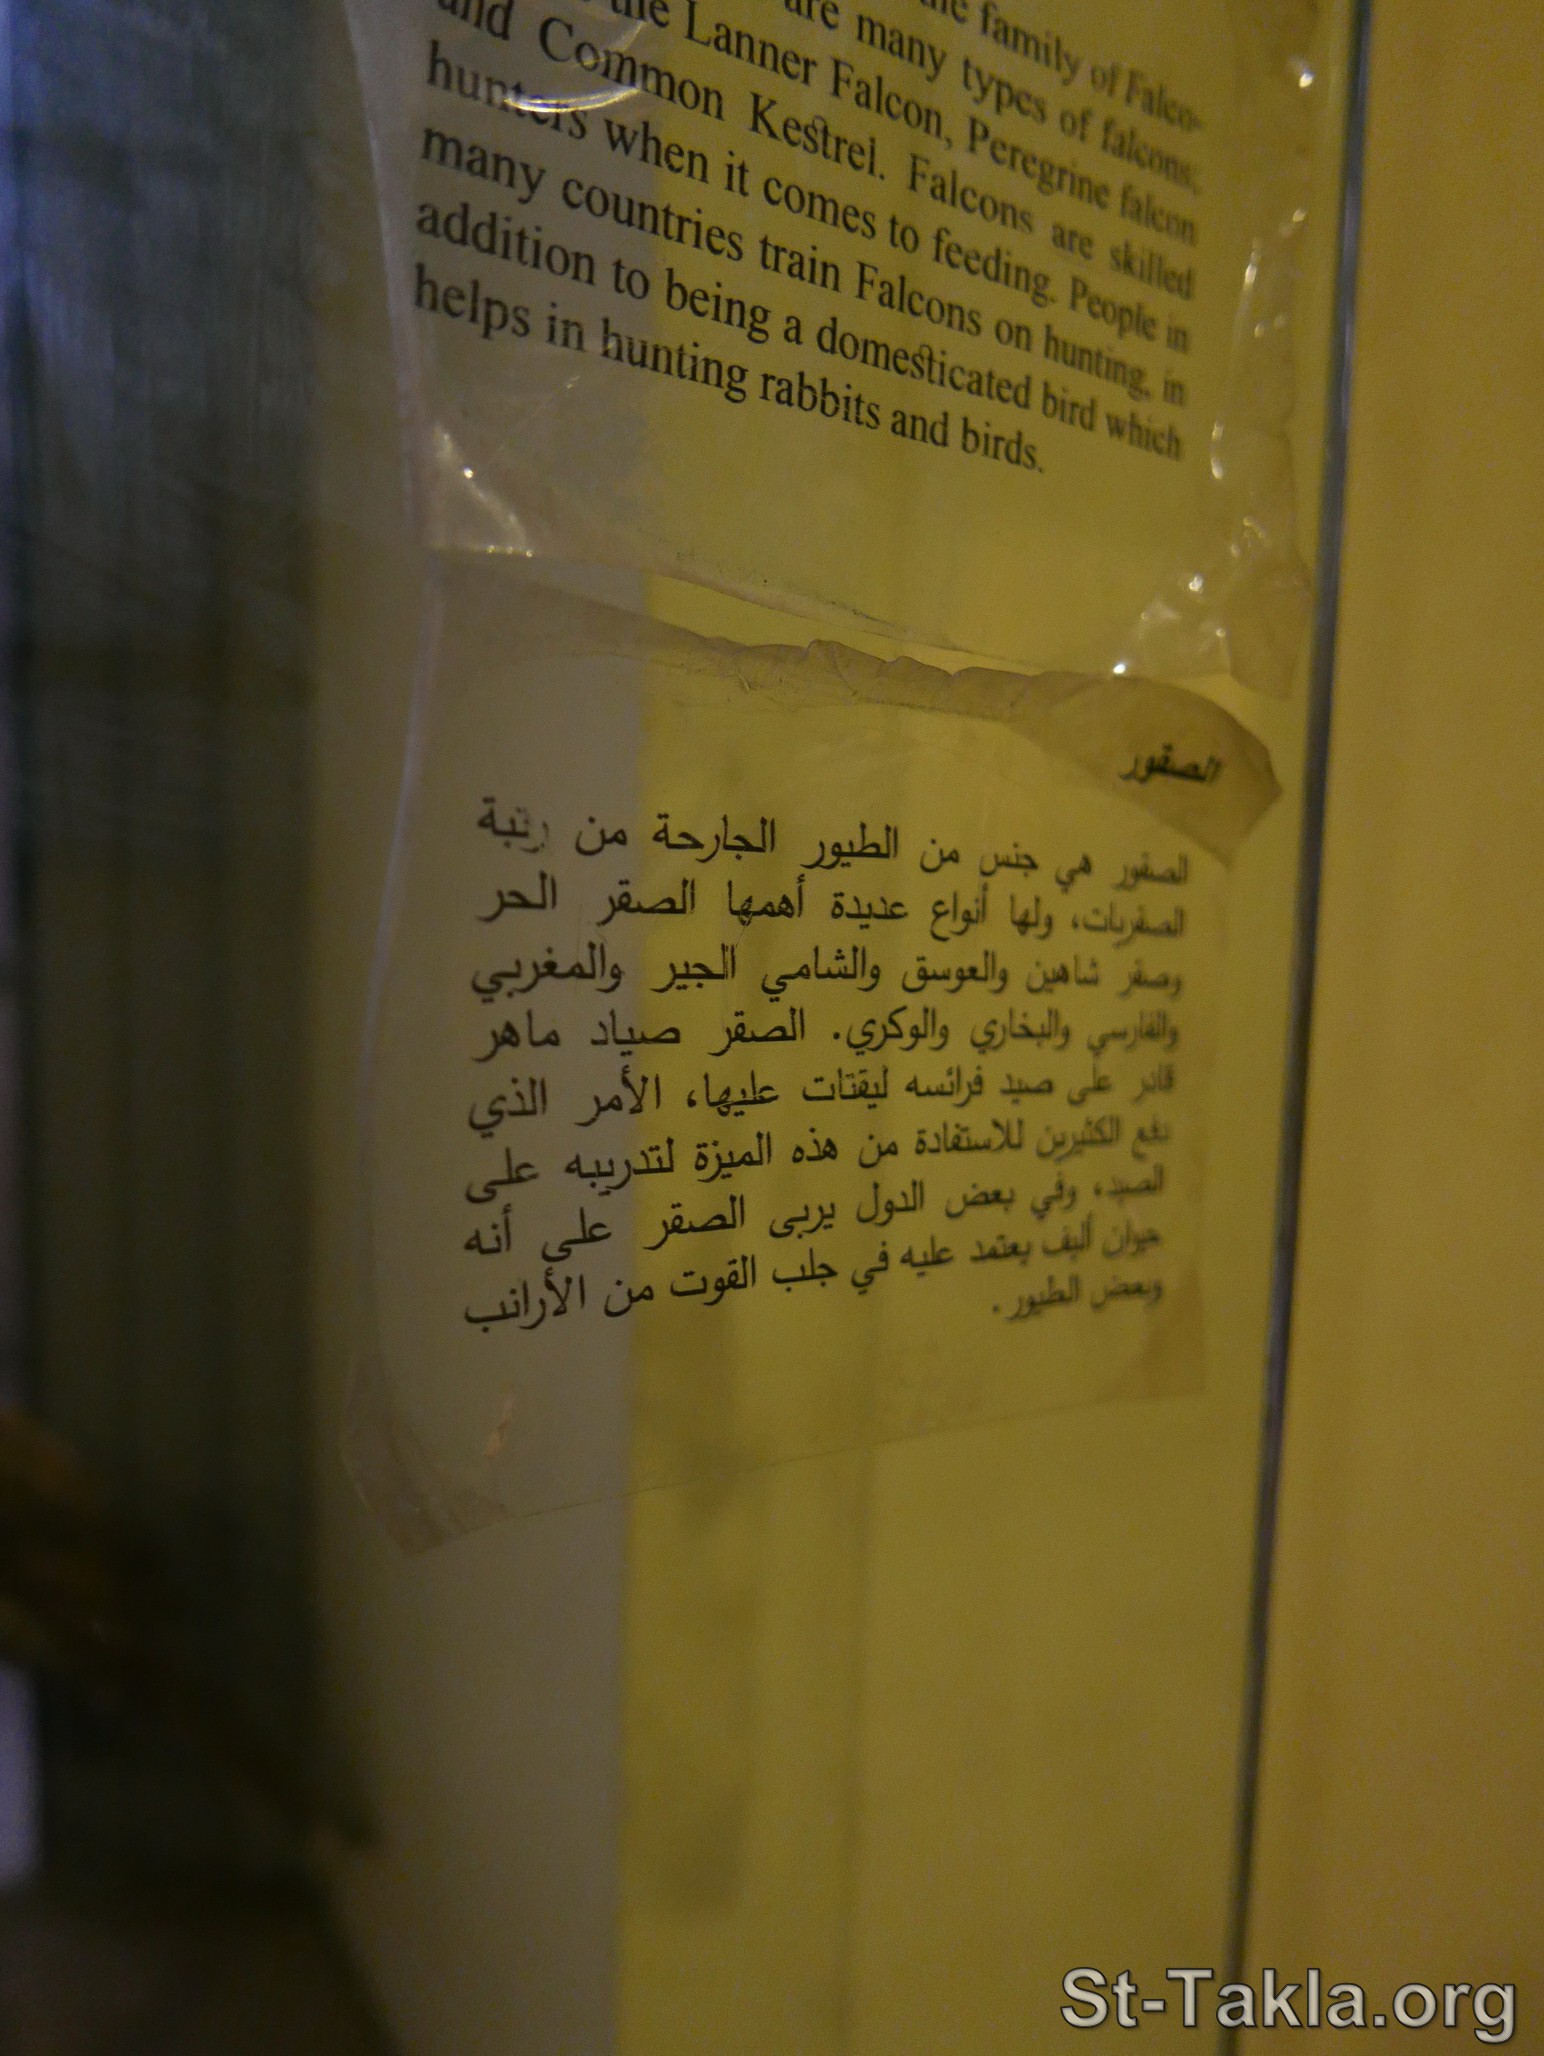 the family of Falco-
are many types of falcons,
the Lanner Falcon, Peregrine falcon
and Common Kestrel. Falcons are skilled
hunters when it comes to feeding. People in
many countries train Falcons on hunting, in
addition to being a domesticated bird which
helps in hunting rabbits and birds.
الصقور
الصقور هي جنس من الطيور الجارحة من رتبة
الصقريات، ولها أنواع عديدة أهمها الصقر الحر
وصقر شاهين والعوسق والشامي الجير والمغربي
والفارسي والبخاري والوكري. الصقر صياد ماهر
قادر على صيد فرائسه ليقتات عليها، الأمر الذي
دفع الكثيرين للاستفادة من هذه الميزة لتدريبه على
الصيد، وفي بعض الدول يربى الصقر على أنه
حيوان أليف يعتمد عليه في جلب القوت من الأرانب
وبعض الطيور.
St-Takla.org